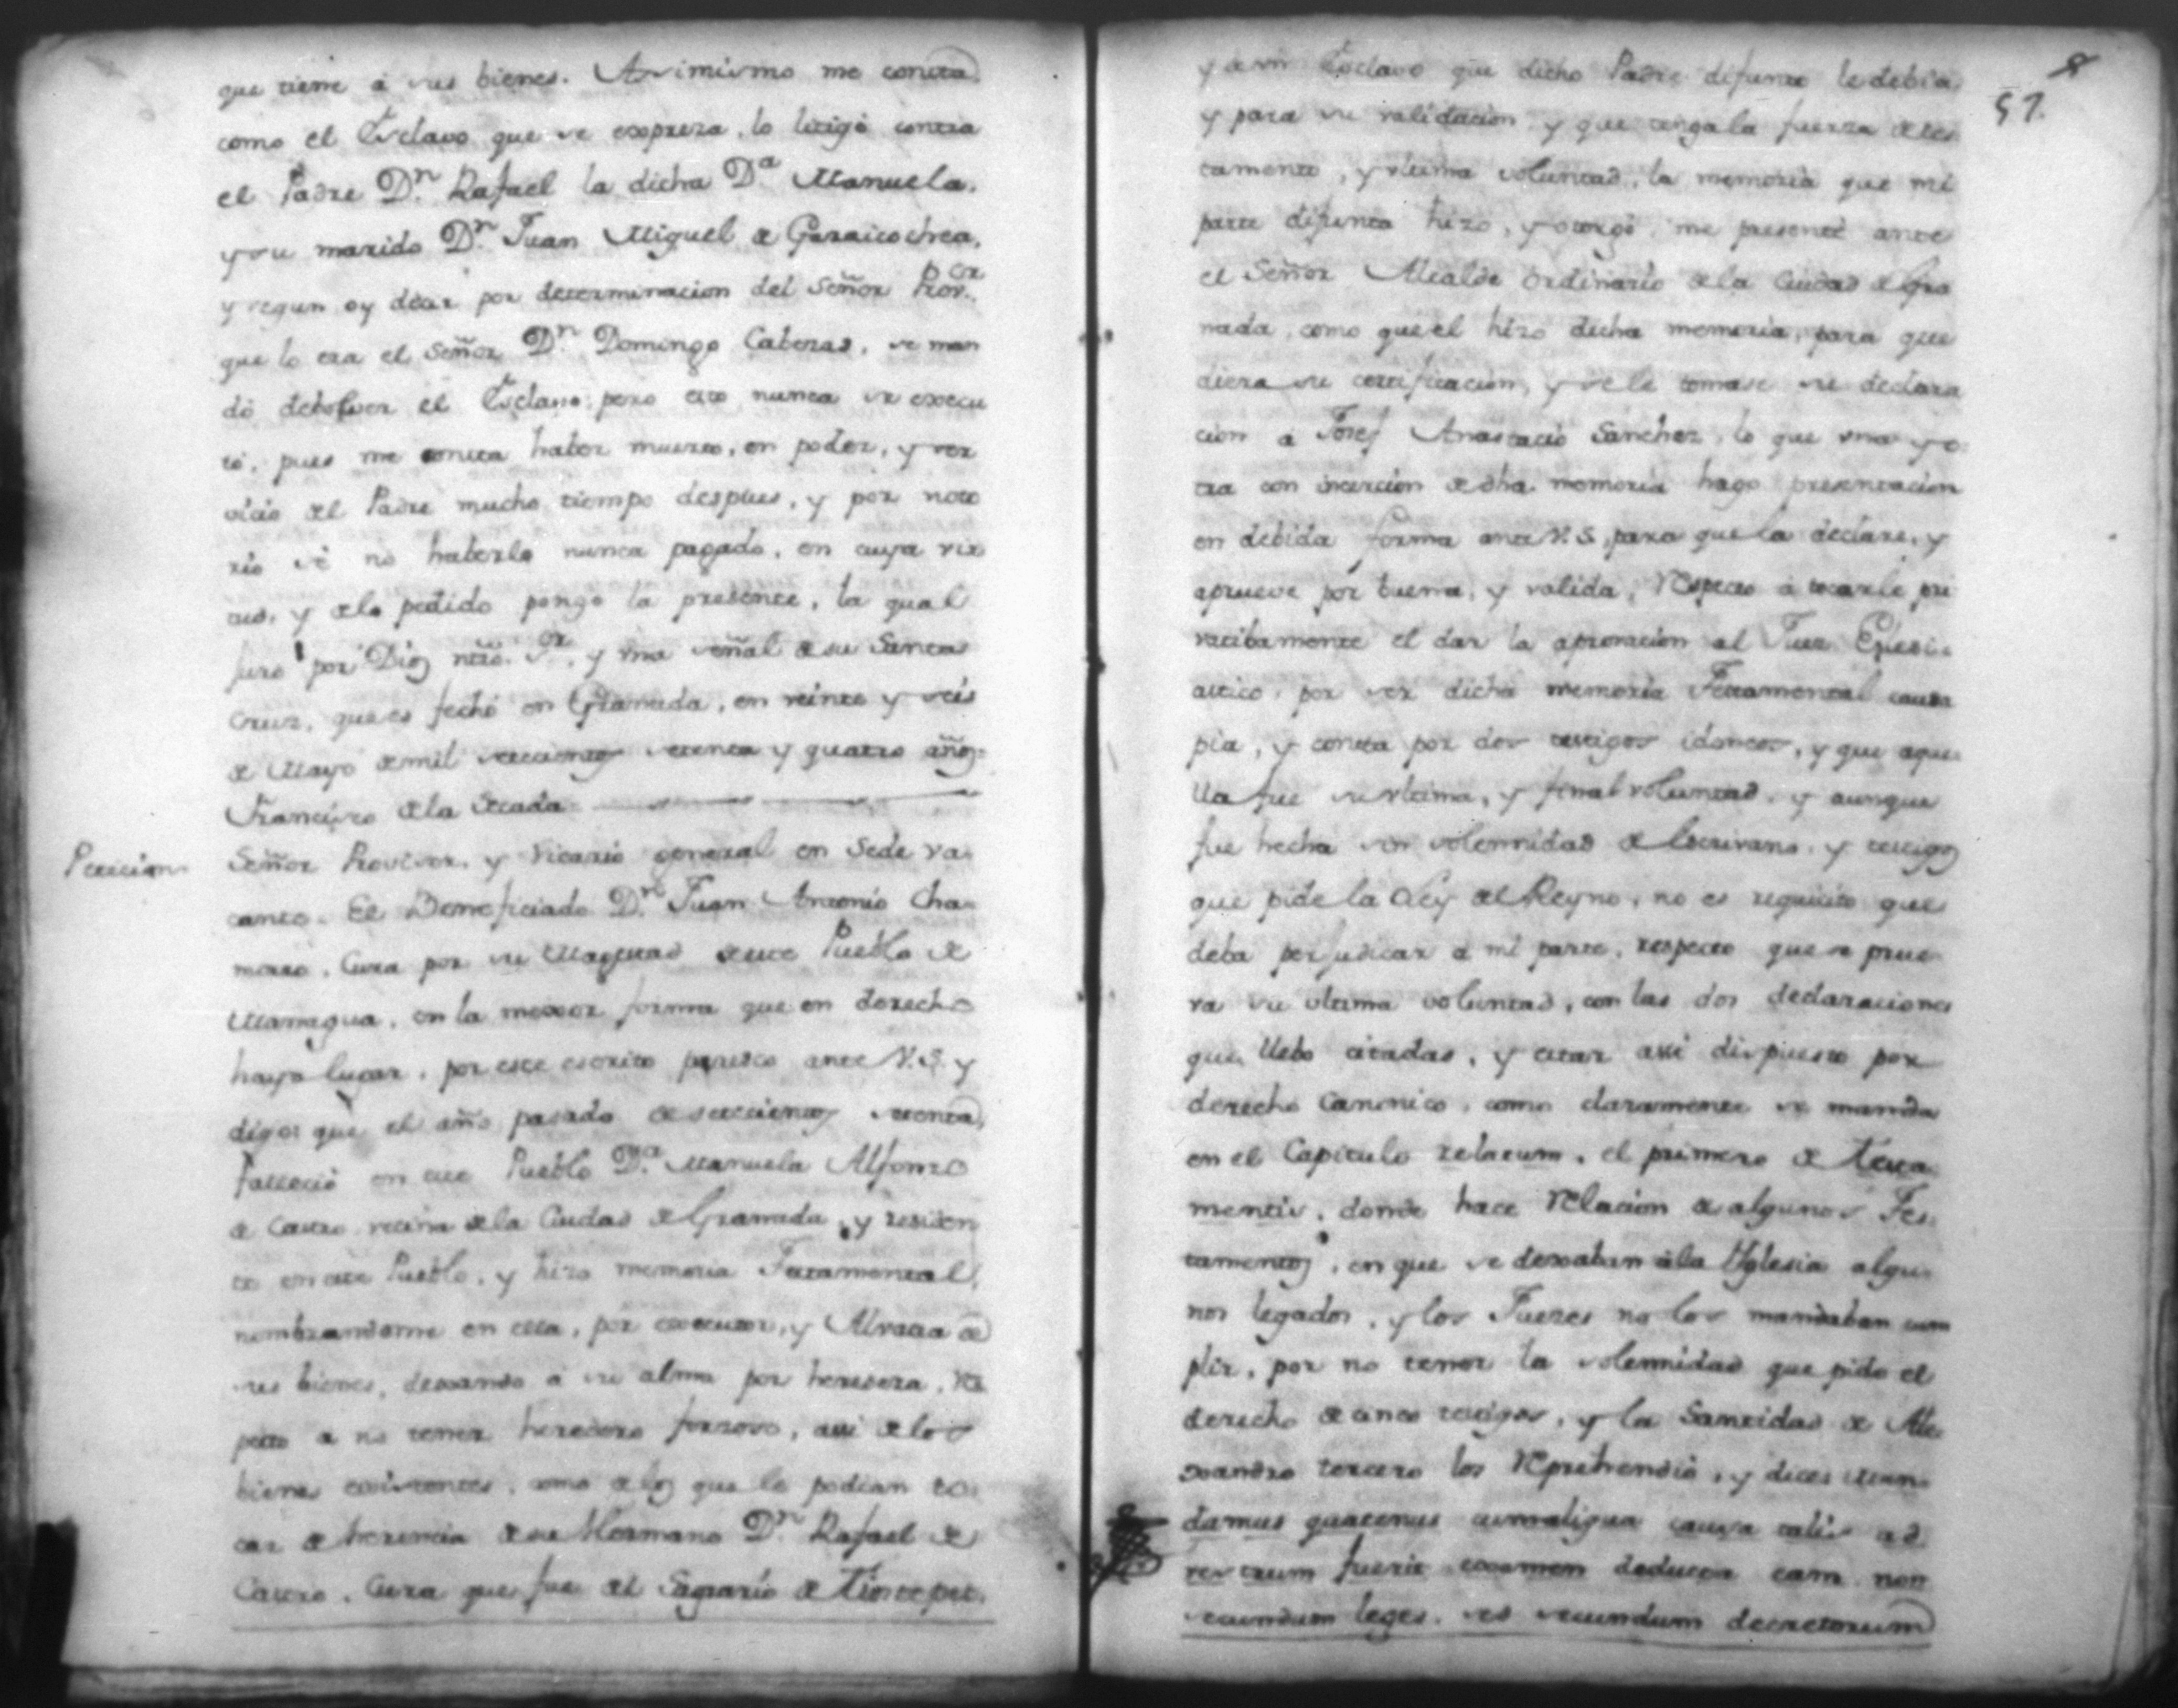 que tiene à sus bienes. Asimismo me consta
como el Esclavo que se expresa, lo litigó contra
el Padre D.n Rafael la dicha D.a Manuela,
y su marido D.n Juan Miguel de Garaicochea,
y segun oy dear por determinacion del Señor Prov.or
que lo era el Señor D.n Domingo Cabezas, se man
dó debolver el Esclavo, pero esto nunca se execu
tó, pues me consta haber muerto, en poder, y ser
vicio del Padre mucho tiempo despues, y por noto
rio sé no haberlo nunca pagado, en cuya vir
tud, y de lo pedido pongo la presente, la qual
juro por Dios ntro. S.or, y una señal de su Santa
Cruz, que es fecho en Granada, en veinte y seis
de Mayo de mil setecientos setenta y quatro años.
Francisco de la Secada
Peticion. Señor Provisor, y Vicario general en Sede va
cante. El Beneficiado D.n Juan Antonio Cha
morro, Cura por su Magestad de este Pueblo de
Managua, en la mexor forma que en derecho
haya lugar, por este escrito paresco ante V.S. y
digo: que el año pasado de setecientos setenta,
falleció en este Pueblo D.a Manuela Alfonzo
de Castro vecina de la Ciudad de Granada, y residen
te en este Pueblo, y hizo memoria Testamental,
nombrandome en ella, por executor, y Alvacea de
sus bienes, dexando à su alma por heredera, res
pecto a no tener heredero forzoso, assi de los
bienes existentes, como de los que le podian to
car de herencia de su Hermano D.n Rafael de
Castro, Cura que fue del Sagrario de
57.
y de un Esclavo que dicho Padre difunto le debia,
y para su validacion, y que tenga la fuerza de tes
tamento, y ultima voluntad, la memoria que mi
parte difunta hizo, y otorgó, me presenté ante
el Señor Alcalde ordinario de la Ciudad de Gra
nada, como que el hizo dicha memoria, para que
diera su certificacion, y se le tomase su declara
cion a Josef Anastacio Sanchez, lo que una y o
tra con incercion de dha. memoria hago presentacion
en debida forma ante V.S. para que la declare, y
aprueve por buena, y valida, respecto a tocarle pri
vatibamente el dar la aprovacion al Juez Eclesi
astico, por ser dicha memoria Testamental causa
pia, y consta por dos testigos idoneos, y que aque
lla fue su ultima, y final voluntad, y aunque
fue hecha sin solemnidad de Escrivano, y testigos
que pide la Ley del Reyno, no es requicito que
deba perjudicar a mi parte, respecto que se prue
va su ultima voluntad, con las dos declaraciones
que llebo citadas, y estar assi dispuesto por
derecho Canonico, como claramente se manda
en el Capitulo relatum, el primero de testa
mentis, donde hace relacion de algunos Tes
tamentos, en que se dexaban à la Yglesia algu
nos legados, y los Juezes no los mandaban cum
plir, por no tener la solemnidad que pide el
derecho de cinco testigos, y la Santidad de Ale
xandro tercero los reprehendió, y dice: Man
damus quatenus cum aliqua causa talis ad
vestrum fuerit examen deducta eam non
secundum leges, sed secundum decretorum